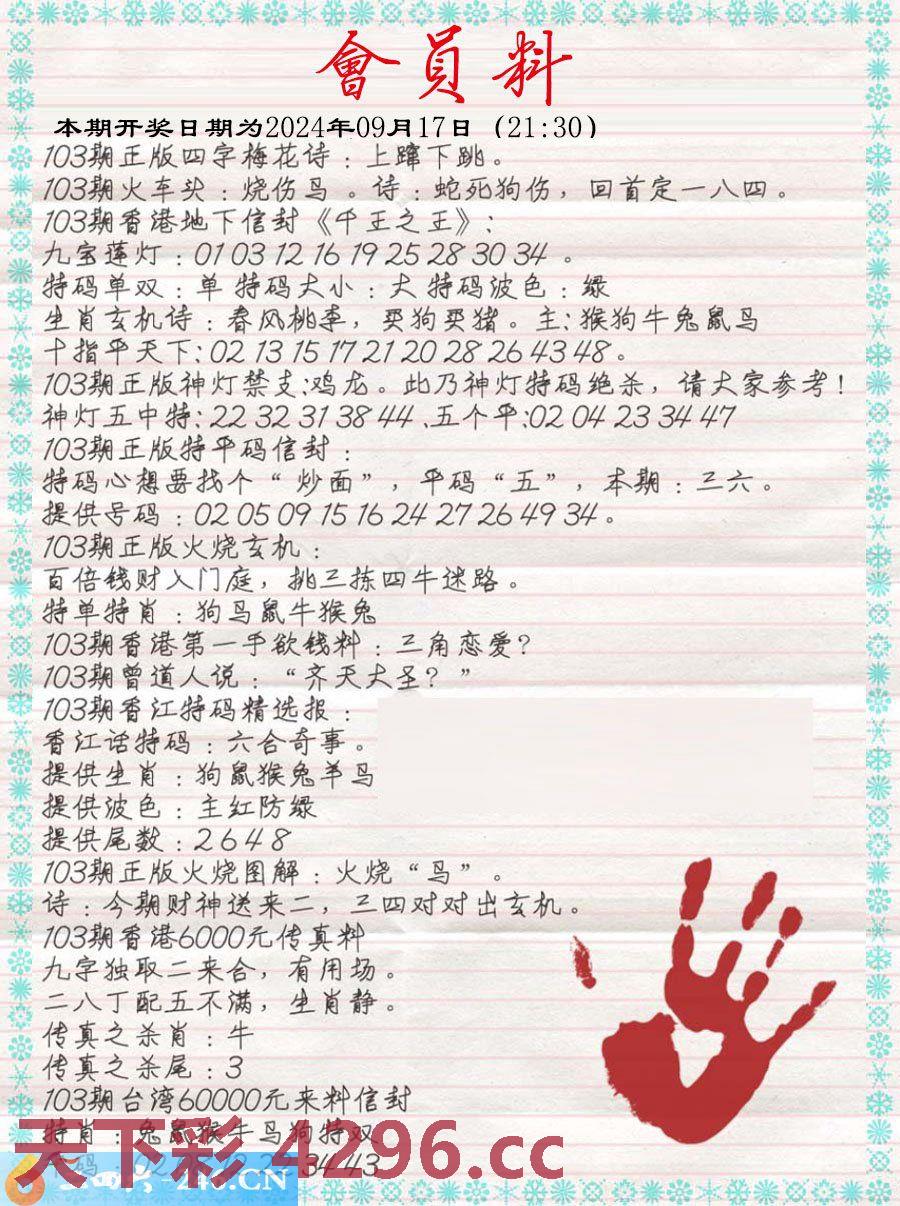 會員料
本期开奖日期为2024年09月17日（21:30）
103期正版四字梅花诗：上蹿下跳。
103期火车头：烧伤鸟。诗：蛇死狗伤，回首定一八四。
103期香港地下信封《千王之王》：
九宝莲灯：01 03 12 16 19 25 28 30 34 。
特码单双：单 特码大小：大 特码波色：绿
生肖玄机诗：春风桃李，买狗买猪。主：猴狗牛兔鼠鸟
十指平天下：02 13 15 17 21 20 28 26 43 48。
103期正版神灯禁支:鸡龙。此乃神灯特码绝杀，请大家参考！
神灯五中特：22 32 31 38 44 、五个平：02 04 23 34 47
103期正版特平码信封：
特码心想要找个“炒面”，平码“五”，本期：三六。
提供号码：02 05 09 15 16 24 27 26 49 34。
103期正版火烧玄机：
百倍钱财入门庭，挑三拣四牛迷路。
特单特肖：狗鸟鼠牛猴兔
103期香港第一手欲钱料：三角恋爱？
103期曾道人说：“齐天大圣？”
103期香江特码精选报：
香江话特码：六合奇事。
提供生肖：狗鼠猴兔羊鸟
提供波色：主红防绿
提供尾数：2 6 4 8
103期正版火烧图解：火烧“鸟”。
诗：今期财神送来二，三四对对出玄机。
103期香港6000元传真料
九字独取二来合，有用场。
二八丁配五不满，生肖静。
传真之杀肖：牛
传真之杀尾：3
103期台湾60000元来料信封
特肖：兔鼠猴牛鸟狗特双
天下彩 4296.cc
34 43
246.CN